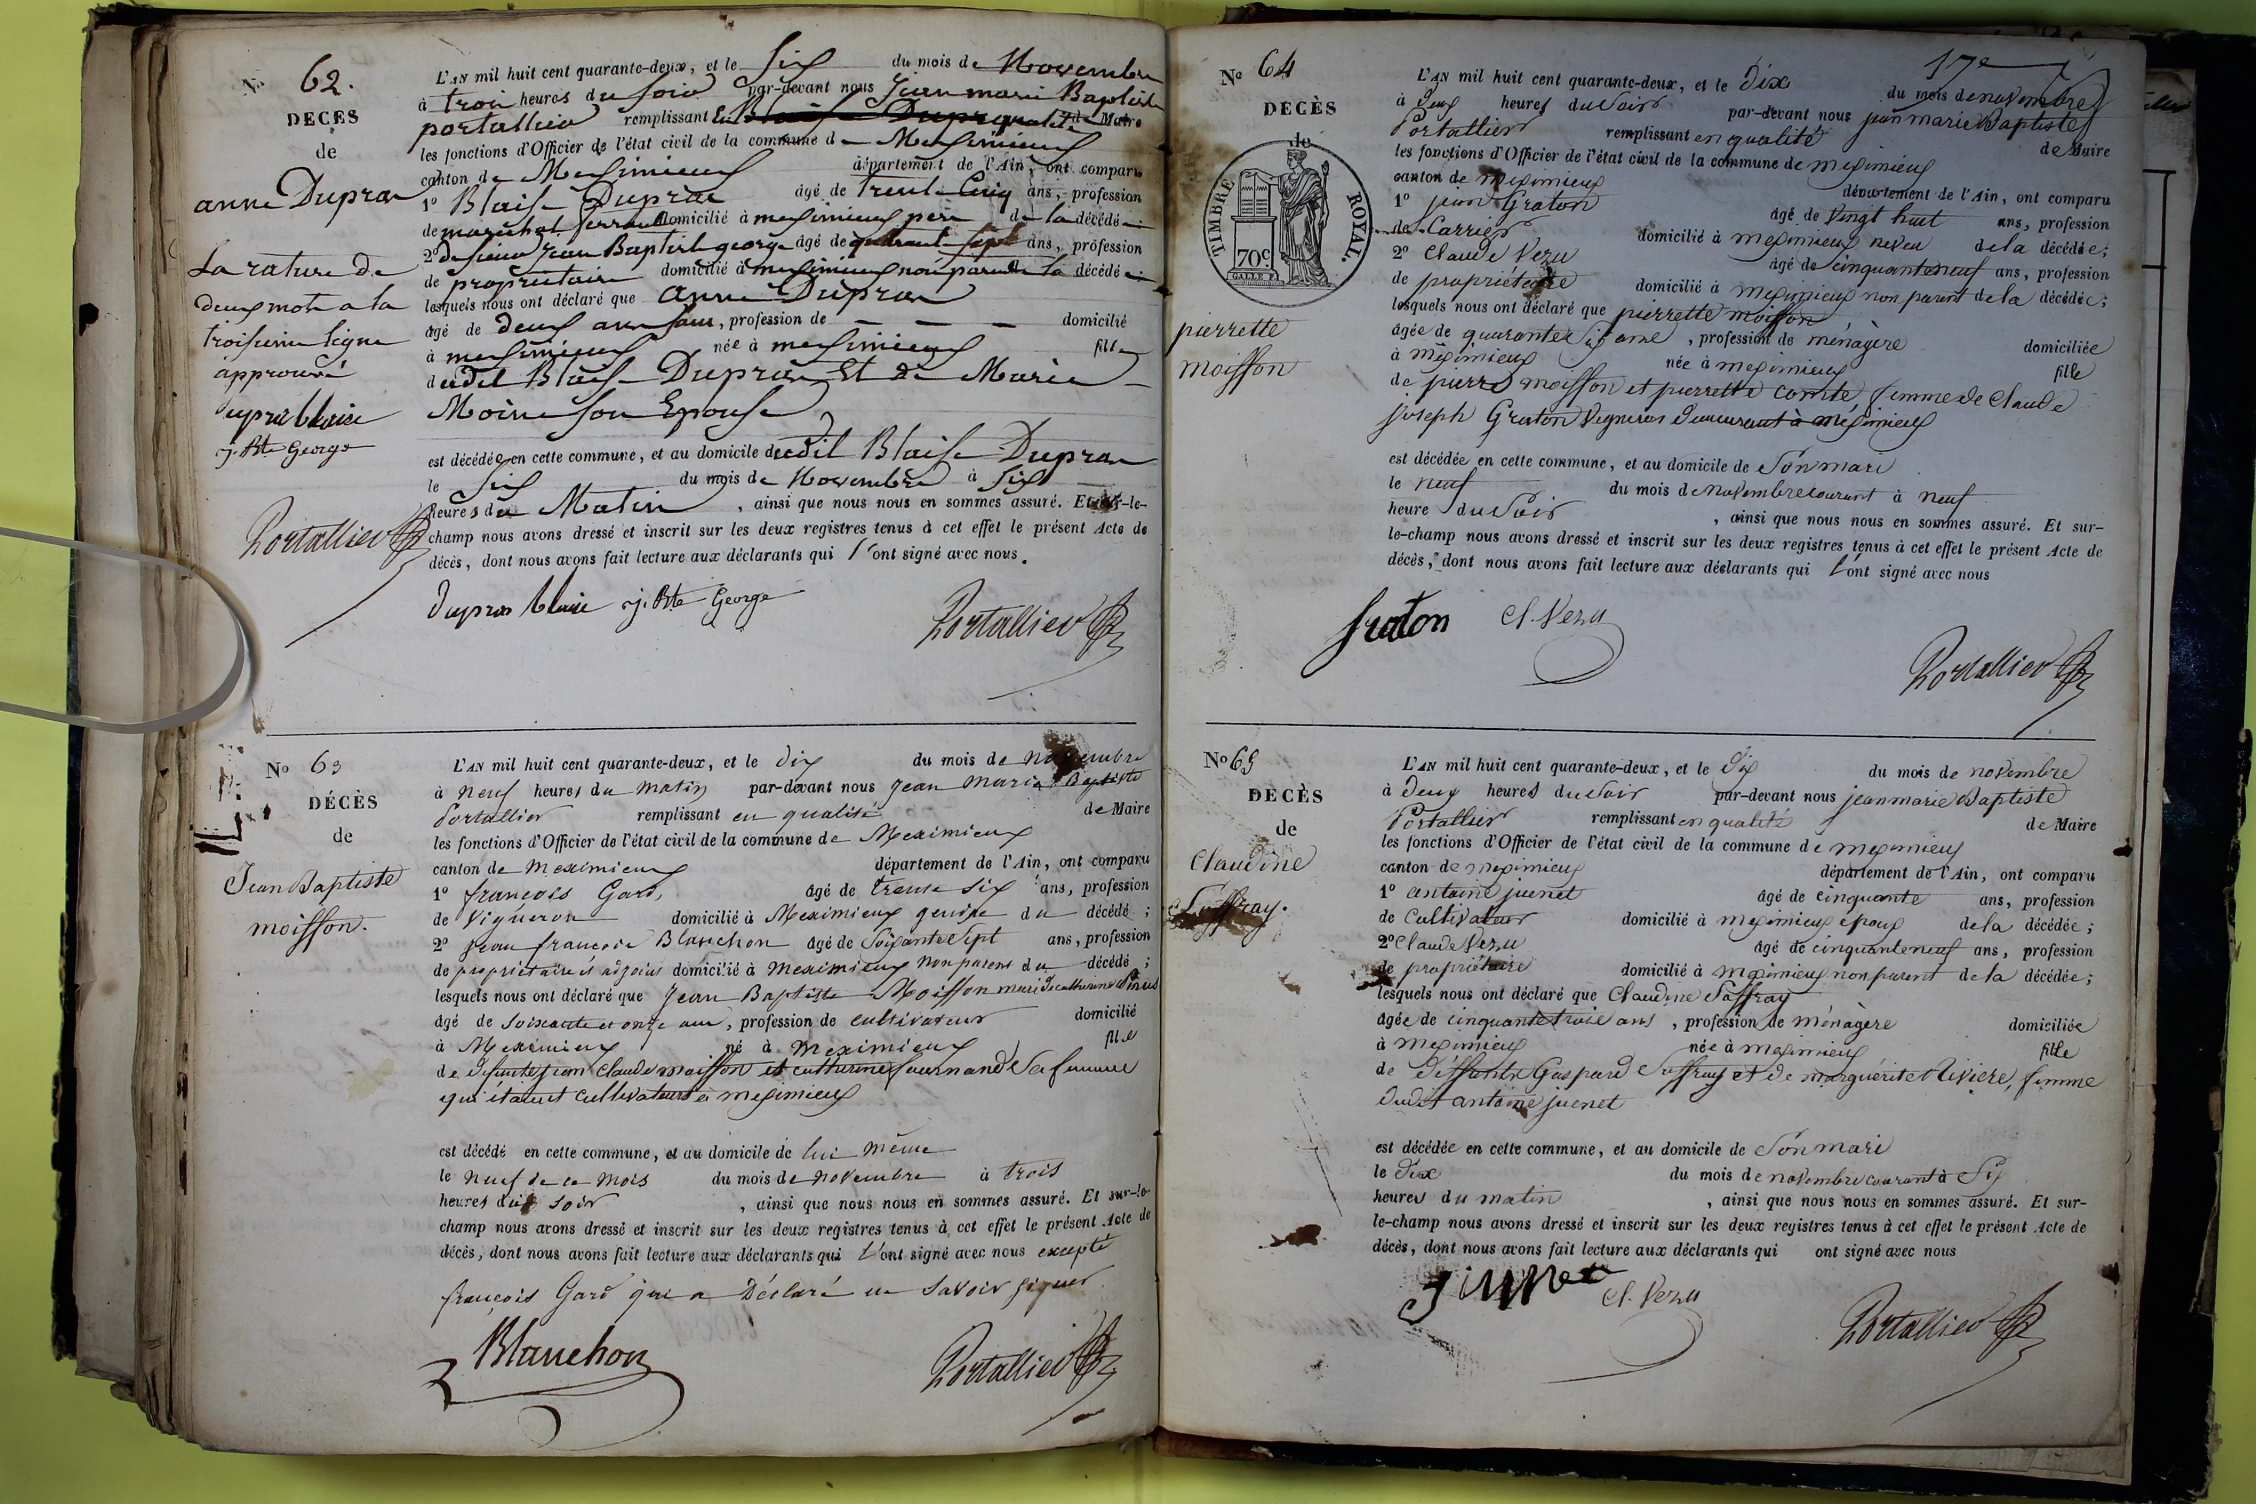 No 62.
DECES
de
anne Dupras
La rature de
deux mots a la
troisieme ligne
approuvé
dupras blaise
j. Bte George
Portallier
L'AN mil huit cent quarante-deux, et le Six du mois de Novembre
à trois heures du soir par-devant nous Jean marie Baptiste
portallier remplissant en qualité de Maire
les fonctions d'Officier de l'état civil de la commune d Meximieux
canton de Meximieux département de l'Ain, ont comparu
1º Blaise Dupras âgé de trente Cinq ans, profession
de marechal ferrant domicilié à meximieux pere de la décédée
2º de sieur Jean Baptiste george âgé de quarante sept ans, profession
de proprietaire domicilié à meximieux non parent de la décédée
lesquels nous ont déclaré que anne Dupras
âgé de deux ans, profession de — — — domicilié
à meximieux née à meximieux fille
dudit Blaise Dupras Et de Marie
Moine son Epouse
est décédée en cette commune, et au domicile dudit Blaise Dupras
le Six du mois de Novembre à Six
heures du Matin, ainsi que nous nous en sommes assuré. Et sur-le-
champ nous avons dressé et inscrit sur les deux registres tenus à cet effet le présent Acte de
décès, dont nous avons fait lecture aux déclarants qui l'ont signé avec nous.
dupras blaise j. Bte George
Portallier
No 63
DÉCÈS
de
Jean Baptiste
moisson.
L'AN mil huit cent quarante-deux, et le dix du mois de novembre
à neuf heures du matin par-devant nous Jean Marie Baptiste
Portallier remplissant en qualité de Maire
les fonctions d'Officier de l'état civil de la commune de Meximieux
canton de Meximieux département de l'Ain, ont comparu
1º françois Gard, âgé de trente six ans, profession
de Vigneron domicilié à Meximieux gendre du décédé;
2º Jean françois Blanchon âgé de Soixante Sept ans, profession
de propriétaire et adjoint domicilié à Meximieux non parent du décédé;
lesquels nous ont déclaré que Jean Baptiste Moisson mari de catherine
âgé de soixante et onze ans, profession de cultivateur domicilié
à Meximieux né à Meximieux fils
de defunts jean claude moisson et catherine fournand Sa femme
qui étaient cultivateurs à meximieux
est décédé en cette commune, et au domicile de lui même
le neuf de ce mois du mois de novembre à trois
heures du soir, ainsi que nous nous en sommes assuré. Et sur-le-
champ nous avons dressé et inscrit sur les deux registres tenus à cet effet le présent Acte de
décès, dont nous avons fait lecture aux déclarants qui l'ont signé avec nous excepté
françois Gard qui a Déclaré ne savoir signer
Blanchon
Portallier
17e
No 64
DECÈS
de
TIMBRE ROYAL.
70c
pierrette
moisson
L'AN mil huit cent quarante-deux, et le Dix du mois de novembre
à deux heures du soir par-devant nous jean marie Baptiste
Portallier remplissant en qualité de Maire
les fonctions d'Officier de l'état civil de la commune de meximieux
canton de meximieux département de l'Ain, ont comparu
1º jean Graton âgé de vingt huit ans, profession
de Carrier domicilié à meximieux neveu de la décédée;
2º Claude Vezu âgé de cinquante neuf ans, profession
de propriétaire domicilié à meximieux non parent de la décédée;
lesquels nous ont déclaré que pierrette moisson
âgée de quarante six ans, profession de ménagère domiciliée
à méximieux née à meximieux fille
de pierre moisson et pierrette comte femme de claude
joseph Graton Vigneron demeurant à méximieux
est décédée en cette commune, et au domicile de Son mari
le neuf du mois de novembre courant à neuf
heure du soir, ainsi que nous nous en sommes assuré. Et sur-
le-champ nous avons dressé et inscrit sur les deux registres tenus à cet effet le présent Acte de
décès, dont nous avons fait lecture aux déclarants qui l'ont signé avec nous
graton Cl. Vezu
Portallier
No 65
DÉCÈS
de
Claudine
Saffray.
L'AN mil huit cent quarante-deux, et le Dix du mois de novembre
à deux heures du soir par-devant nous jean marie Baptiste
Portallier remplissant en qualité de Maire
les fonctions d'Officier de l'état civil de la commune de meximieux
canton de meximieux département de l'Ain, ont comparu
1º antoine juenet âgé de cinquante ans, profession
de cultivateur domicilié à meximieux époux de la décédée;
2º Claude Vezu âgé de cinquante neuf ans, profession
de propriétaire domicilié à meximieux non parent de la décédée;
lesquels nous ont déclaré que Claudine Saffray
âgée de cinquante trois ans, profession de ménagère domiciliée
à meximieux née à meximieux fille
de deffunts Gaspard Saffray et de marguérite Riviere, femme
dudit antoine juenet
est décédée en cette commune, et au domicile de Son mari
le dix du mois de novembre courant à Six
heures du matin, ainsi que nous nous en sommes assuré. Et sur-
le-champ nous avons dressé et inscrit sur les deux registres tenus à cet effet le présent Acte de
décès, dont nous avons fait lecture aux déclarants qui ont signé avec nous
Cl. Vezu
Portallier